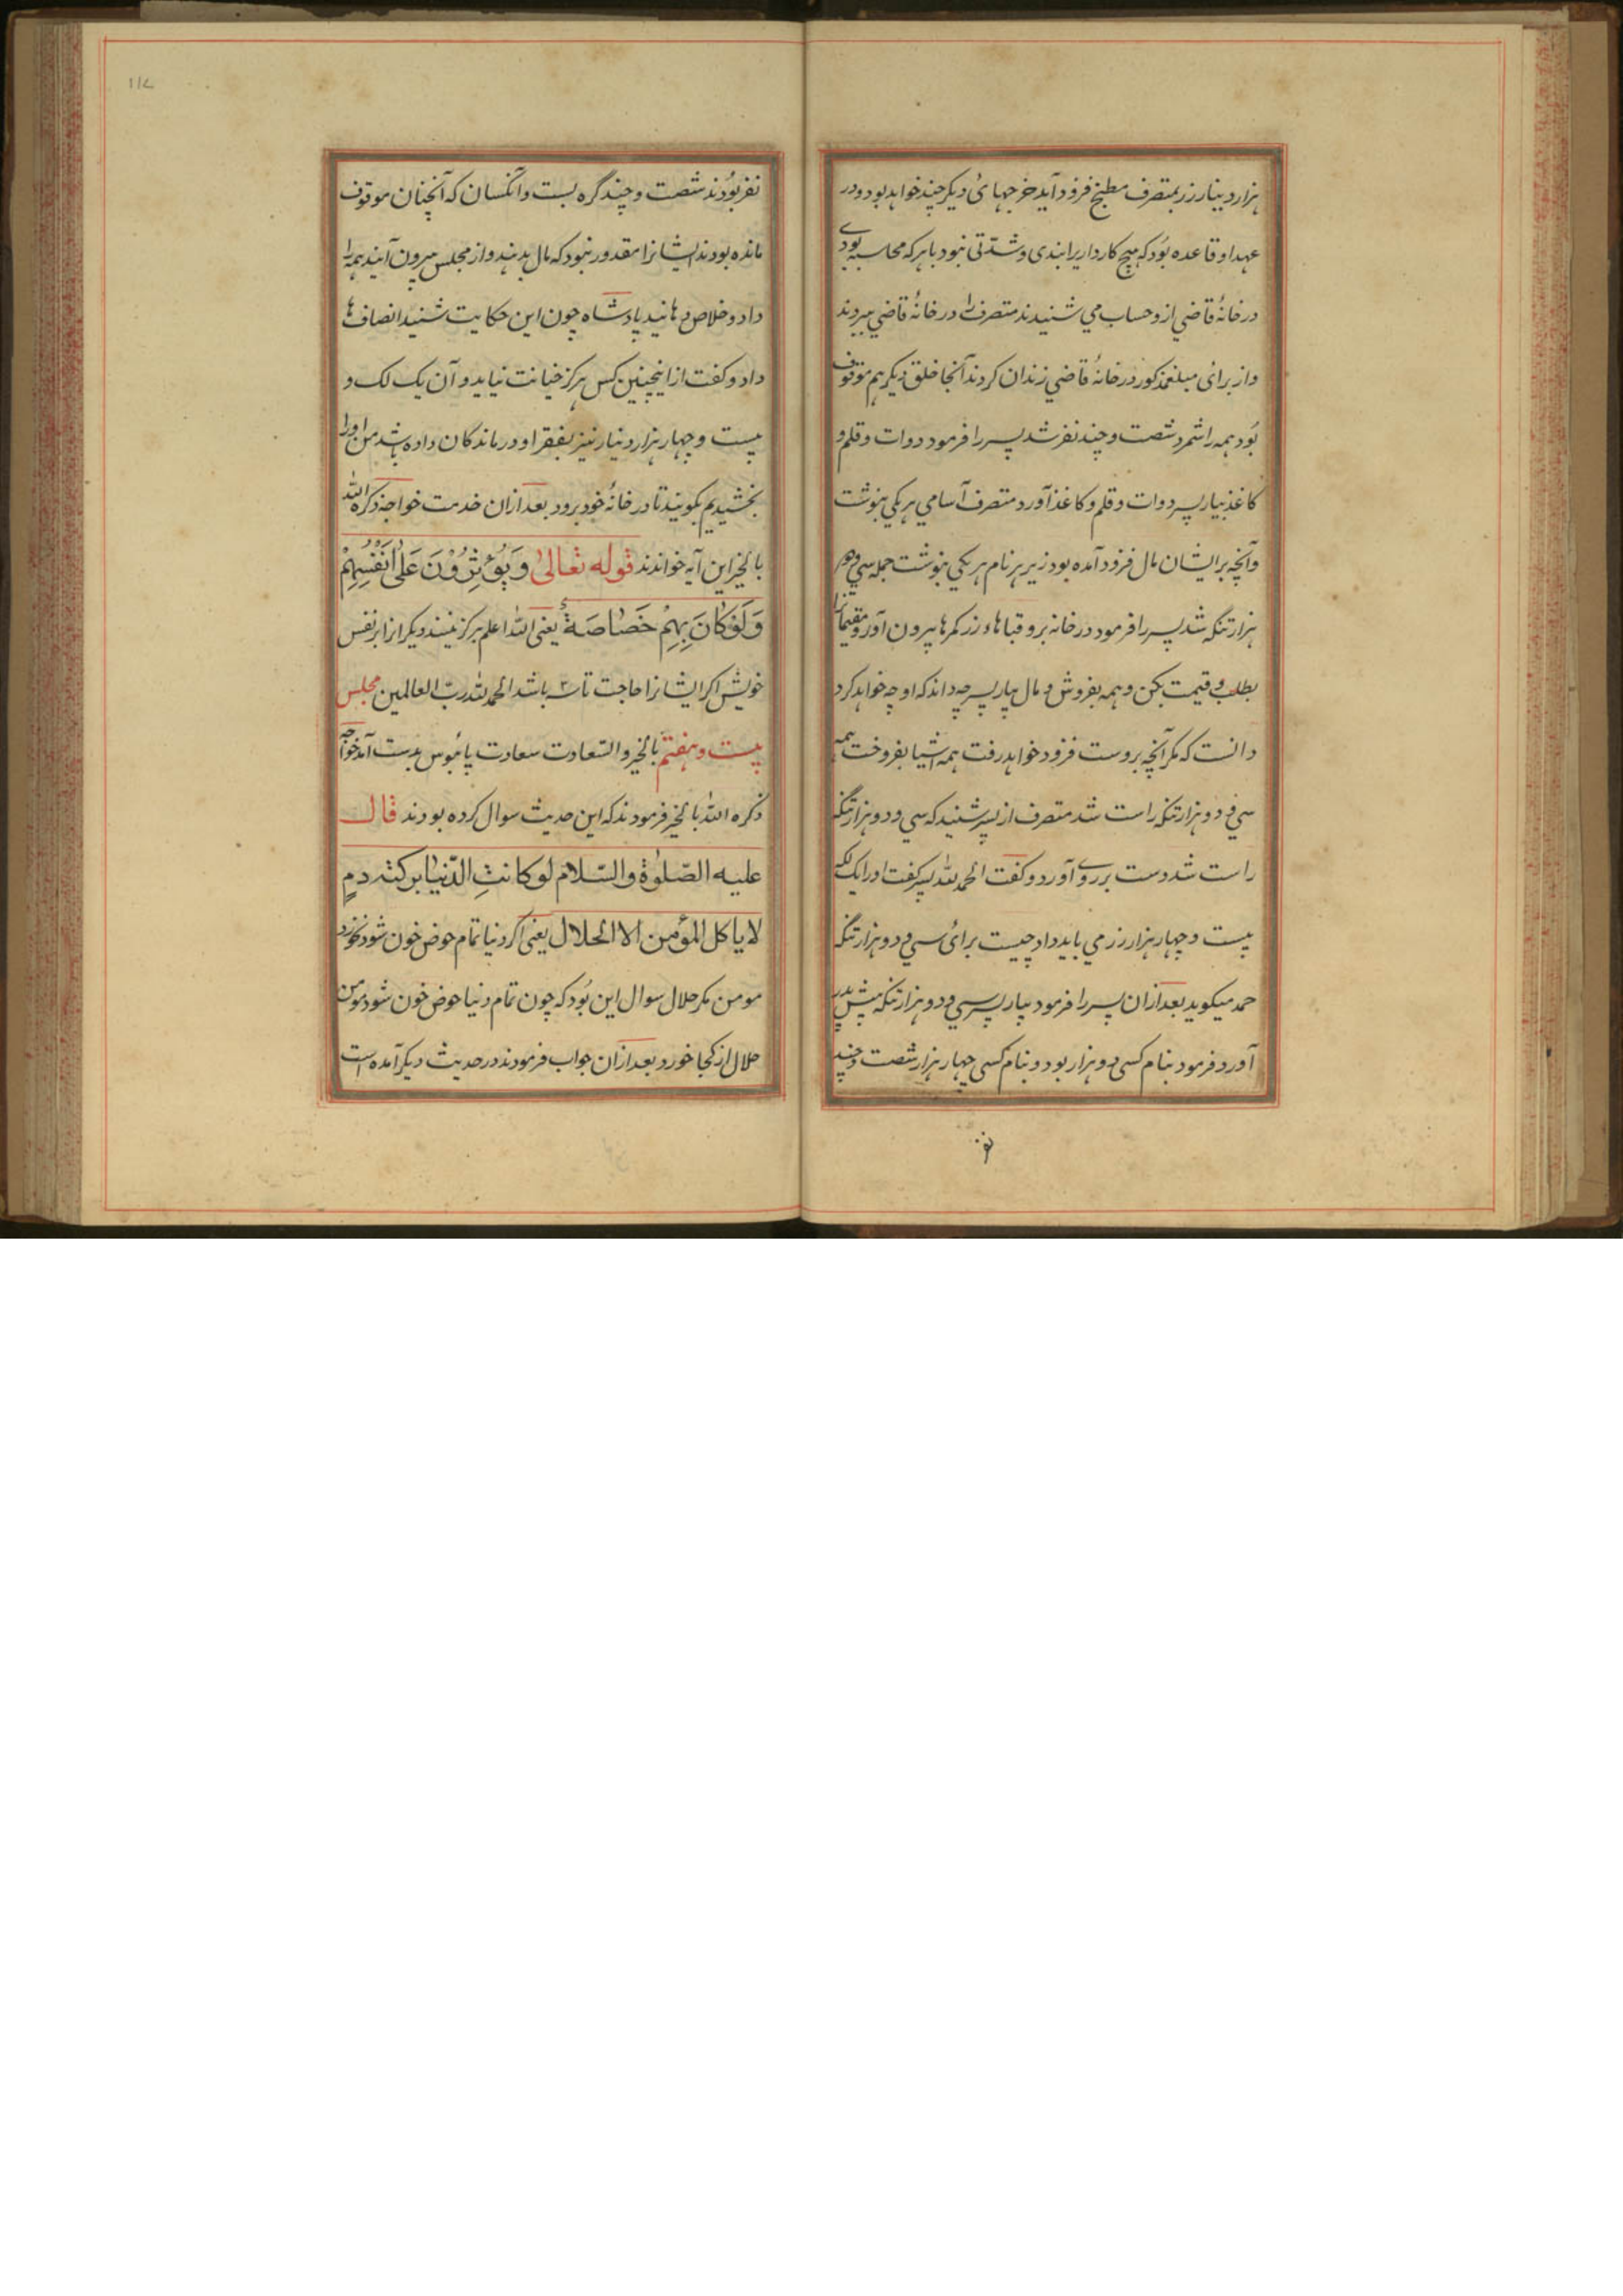 هزار دینار زر بمتصرف مطبخ فرود آید خرجهائ دیکر چند خواهد بود و در
عهد او قاعده بُود که هیچ کاردار یرا بندی و شدّتی نبود با هر که محاسبه بودے
در خانهٔ قاضي از و حساب مي شنیدند متصرف را در خانهٔ قاضي ببردند
و از برائ مبلغ مذکور در خانهٔ قاضي زندان کردند آنجا خلق دیکر هم موقوف
بُود همه را شمرد شصت و چند نفر شد پسر را فرمود دوات و قلم و
کاغذ بیار پسر دوات و قلم و کاغذ آورد متصرف آسامي هر یکي بنوشت
و آنچه بر ایشان مال فرود آمده بود زیر هر نام هر یکي بنوشت جمله سي و دو
هزار تنکه شد پسر را فرمود در خانه برو قباهاء زر کمرها بیرون آور و مقیمانرا
بطلب و قیمت بکن و همه بفروش و مال بیار پسر چه داند که او چه خواهد کرد
دانست که مکر آنچه بروست فرود خواهد رفت همه اشیا بفروخت همه
سي و دو هزار تنکه راست شد متصرف از پسر شنید که سي و دو هزار تنکه
راست شد دست بر روے آورد و کفت الحمد لله پسر کفت او را یک لکه
بیست و چهار هزار زر مي باید داد چیست برائ سي و دو هزار تنکه
حمد میکوید بعد ازان پسر را فرمود بیار پسر سي و دو هزار تنکه پیش پدر
آورد فرمود بنام کسی دو هزار بود و بنام کسی چهار هزار شصت و چند
نفر
۱۱۷
نفر بُودند شصت و چند گره بست و انکسان که آنچنان موقوف
مانده بودند ایشانرا مقدور نبود که مال بدهند و از مجلس بیرون آیند همه را
داد و خلاص دهانید پادشاه چون این حکایت شنید انصاف ها
داد و کفت از اینچنین کس هرکز خیانت نیاید و آن یک لک و
بیست و چهار هزار دینار نیز بفقرا و درماندکان داده باشد من او را
بخشیدیم بکوئید تا در خانهٔ خود برود بعد ازان خدمت خواجه ذکره الله
بالخیر این آیه خواندند قوله تعالیٰ وَیُؤْثِرُوْنَ عَلیٰ اَنْفُسِهِمْ
وَلَوْ کَانَ بِهِمْ خَصَاصَةٌ یعنی الله اعلم برکزینند دیکر انرا بر نفس
خویش اکر ایشانرا حاجت تا سه باشد الحمد لله ربّ العالمین مجلس
بیست و هفتم بالخیر والسّعادت سعادت پائبوس بدست آمد خواجه
ذکره الله بالخیر فرمودند که این حدیث سوال کرده بودند قال
علیه الصّلوٰة والسّلام لو کانتِ الدّنیا برکته دمٍ
لا یاکل المؤمن الا الحلال یعنی اکر دنیا تمام حوض خون شود نخورد
مومن مکر حلال سوال این بُود که چون تمام دنیا حوض خون شود مومن
حلال از کجا خورد بعد ازان جواب فرمودند در حدیث دیکر آمده است